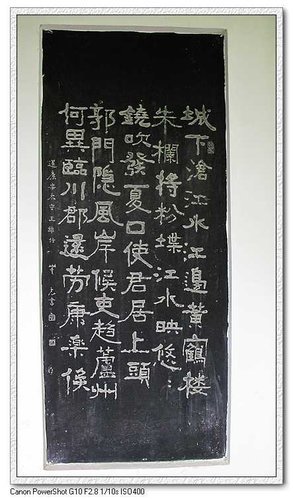 城下滄江水江邊黄鶴楼
朱欄將粉堞江水映悠〻
鐃吹發夏口使君居上頭
郭門隐風岸候吏趋蘆州
何異臨川郡還劳康樂侯
送康太守王維詩
Canon PowerShot G10 F2.8 1/10s ISO400